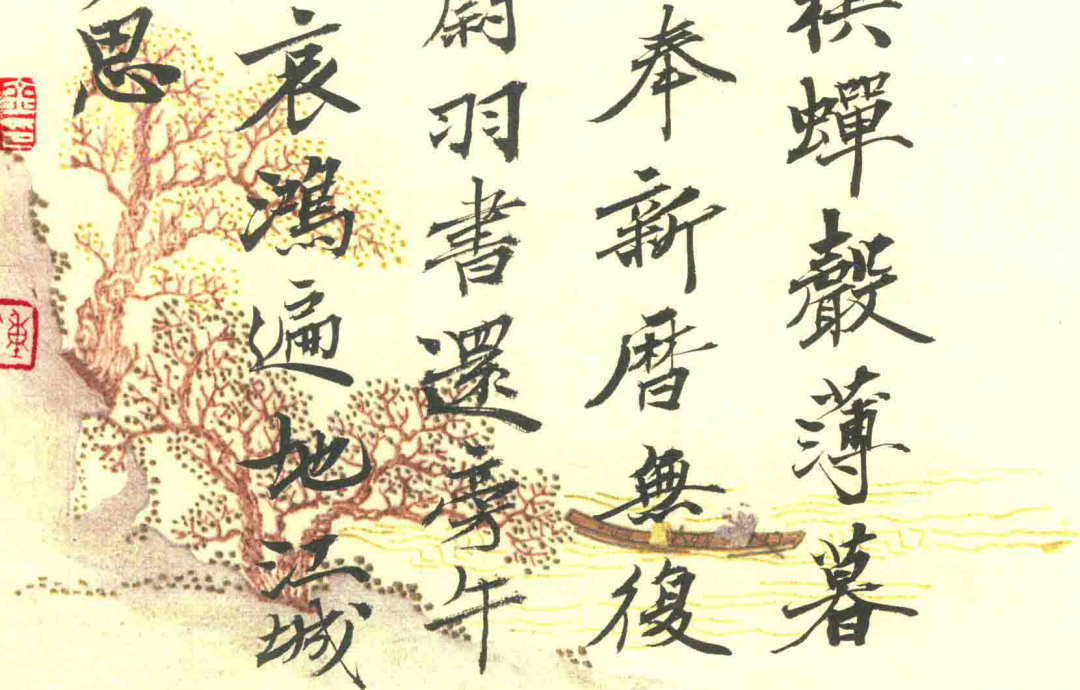 蟬聲薄暮
奉新暦無復
羽書還旁午
哀鴻遍地江城
思